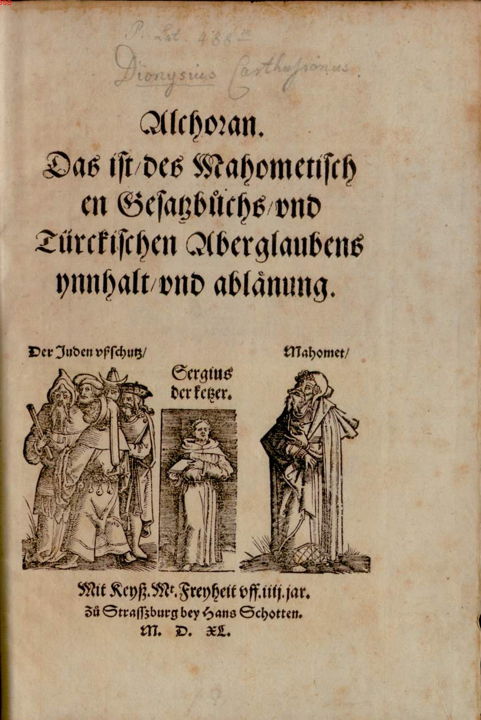 P. lat. 488 m
Dionysius Carthusianus.
Alchoran.
Das ist/des Mahometisch
en Gesatzbůchs/vnd
Türckischen Aberglaubens
ynnhalt/vnd ablånung.
Der Juden vßschutz/
Mahomet/
Sergius
der ketzer.
Mit Keyß. Mt. Freyheit vff .iiij. jar.
Zů Straſſzburg bey Hans Schotten.
M. D. XL.